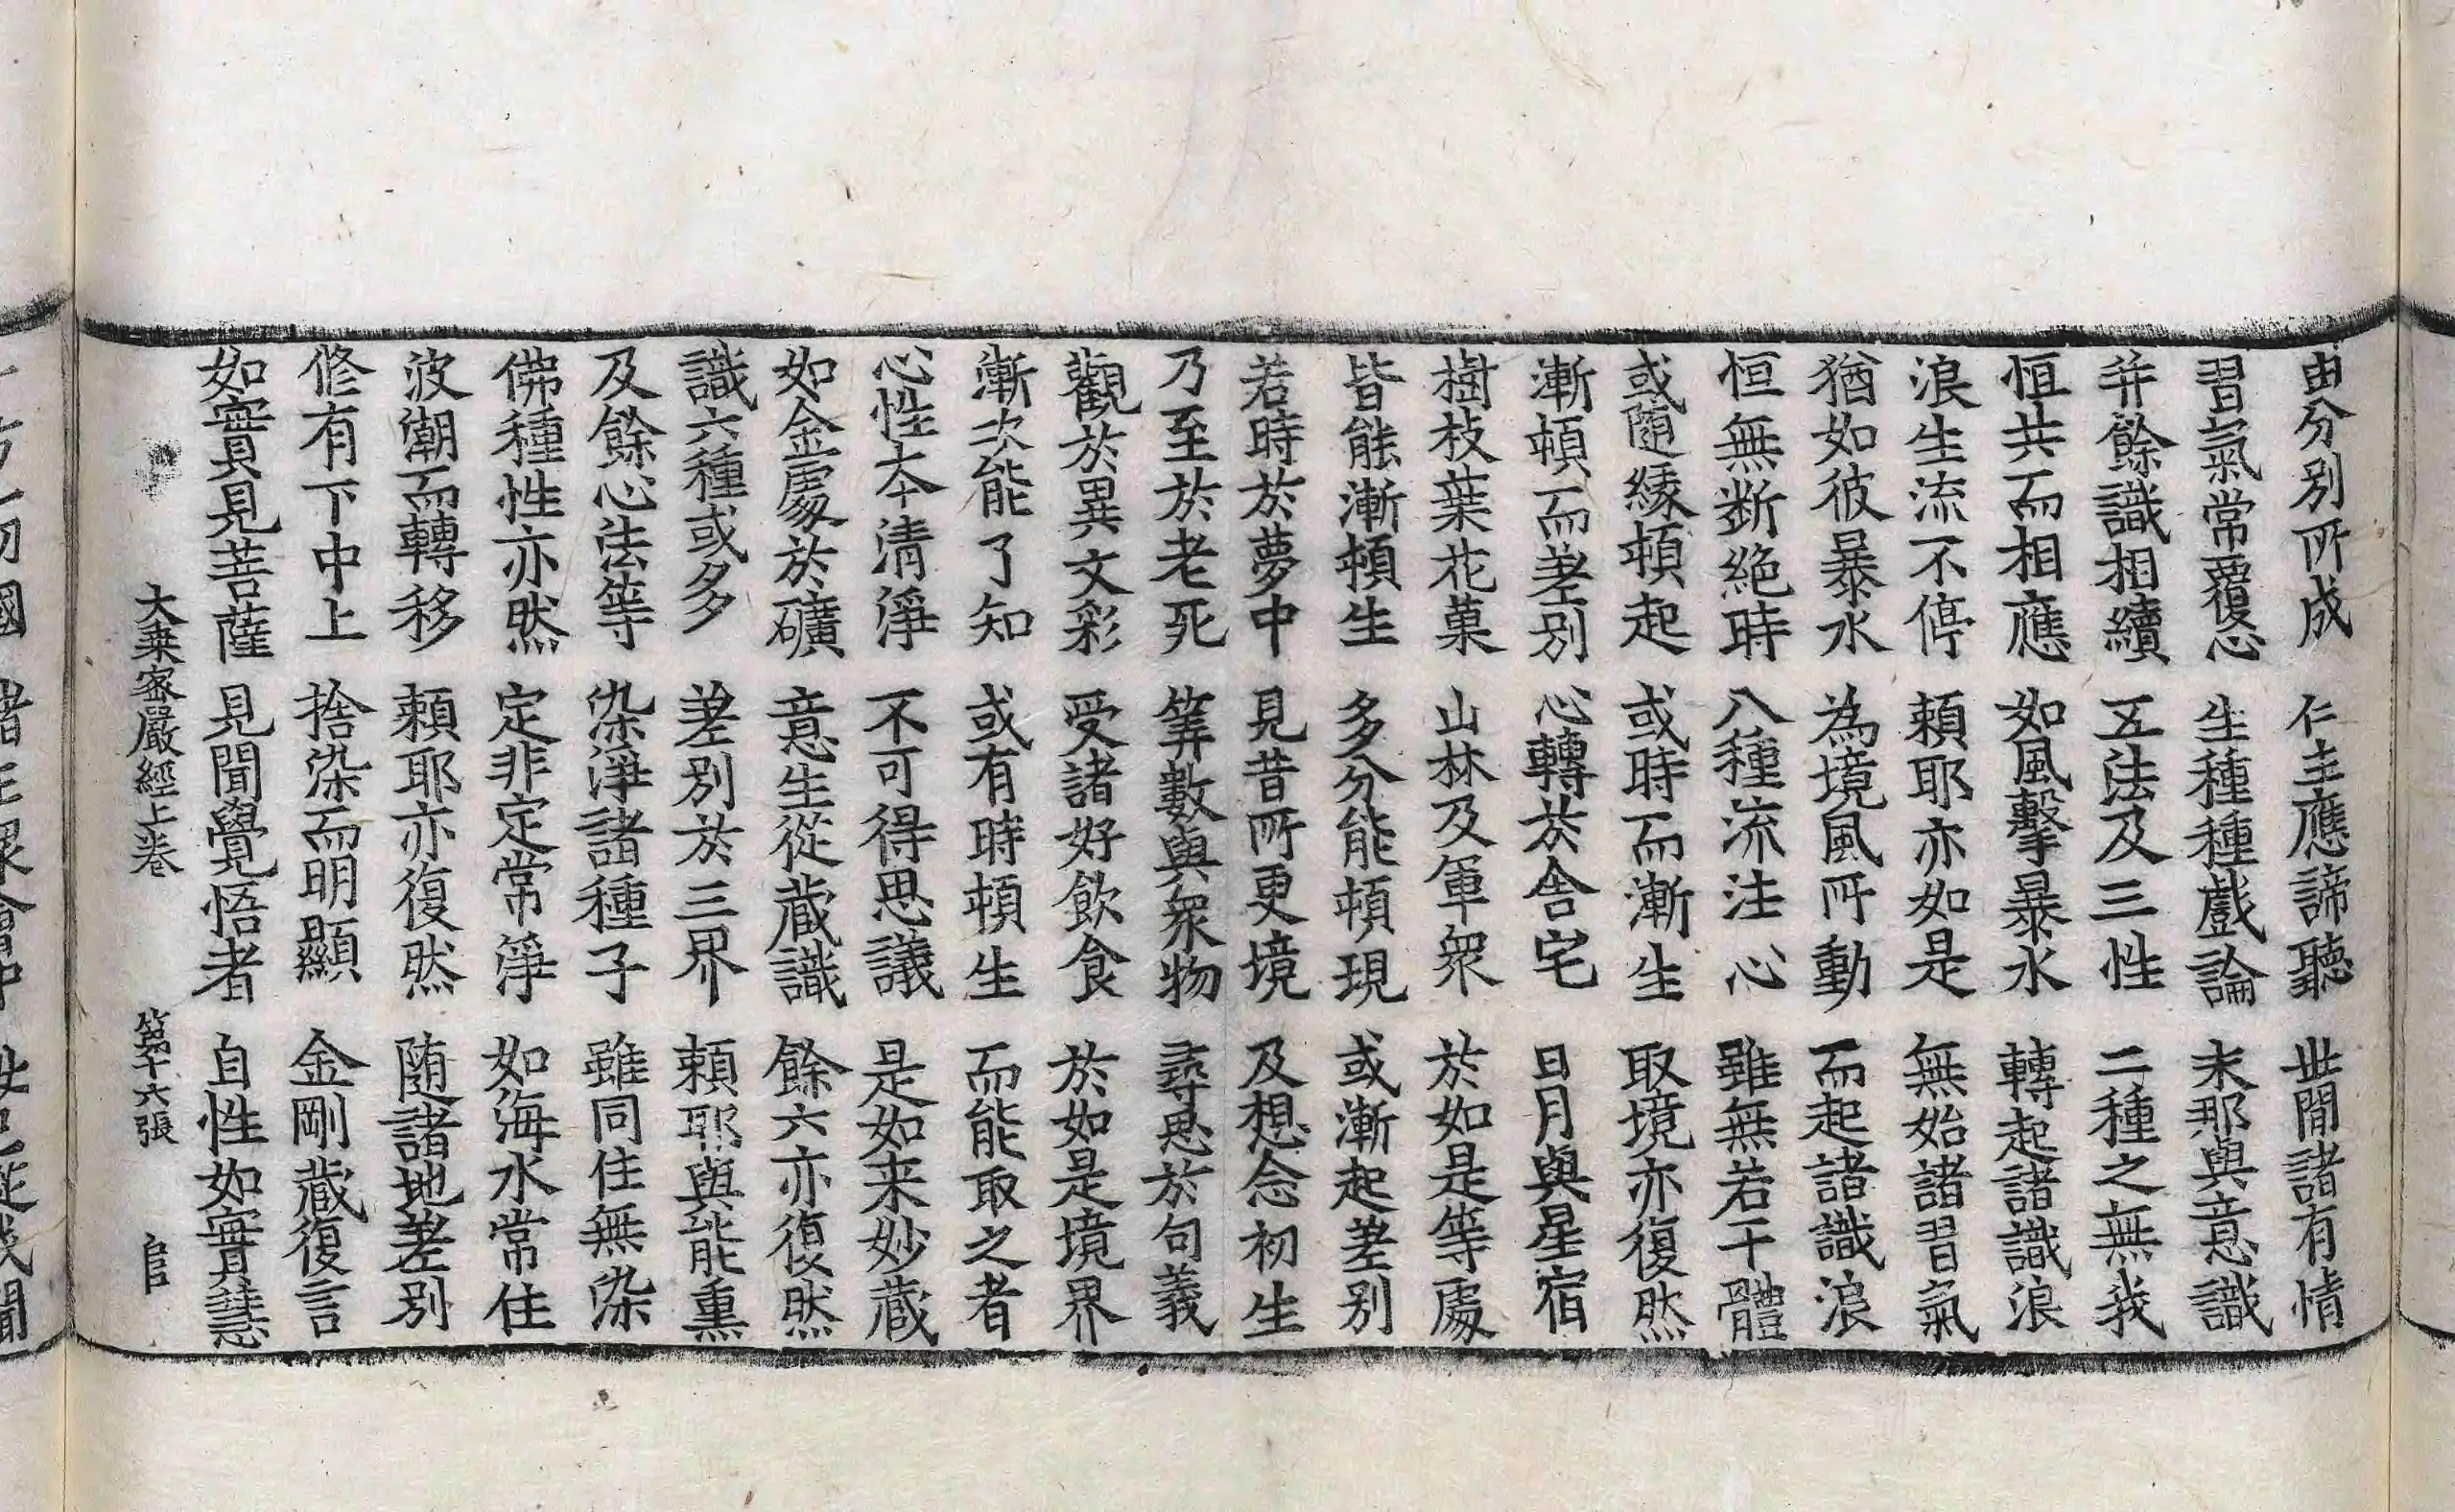 由分別所成　仁主應諦聽　世間諸有情
習氣常覆心　生種種戲論　末那與意識
并餘識相續　五法及三性　二種之無我
恒共而相應　如風擊暴水　轉起諸識浪
浪生流不停　頼耶亦如是　無始諸習氣
猶如彼暴水　為境風所動　而起諸識浪
恒無斷絕時　八種流注心　雖無若干體
或隨緣頓起　或時而漸生　取境亦復然
漸頓而差別　心轉於舍宅　日月與星宿
樹枝葉花菓　山林及軍眾　於如是等處
皆能漸頓生　多分能頓現　或漸起差別
若時於夢中　見昔所更境　及想念初生
乃至於老死　筭數與眾物　尋思於句義
觀於異文彩　受諸好飲食　於如是境界
漸次能了知　或有時頓生　而能取之者
心性本清淨　不可得思議　是如来妙藏
如金處於礦　意生從藏識　餘六亦復然
識六種或多　差別於三界　頼耶與能熏
及餘心法等　染淨諸種子　雖同住無染
佛種性亦然　定非定常淨　如海水常住
波潮而轉移　頼耶亦復然　随諸地差別
修有下中上　捨染而明顯　金剛藏復言
如實見菩薩　見聞覺悟者　自性如實慧
大乗密嚴經上卷　第十六張